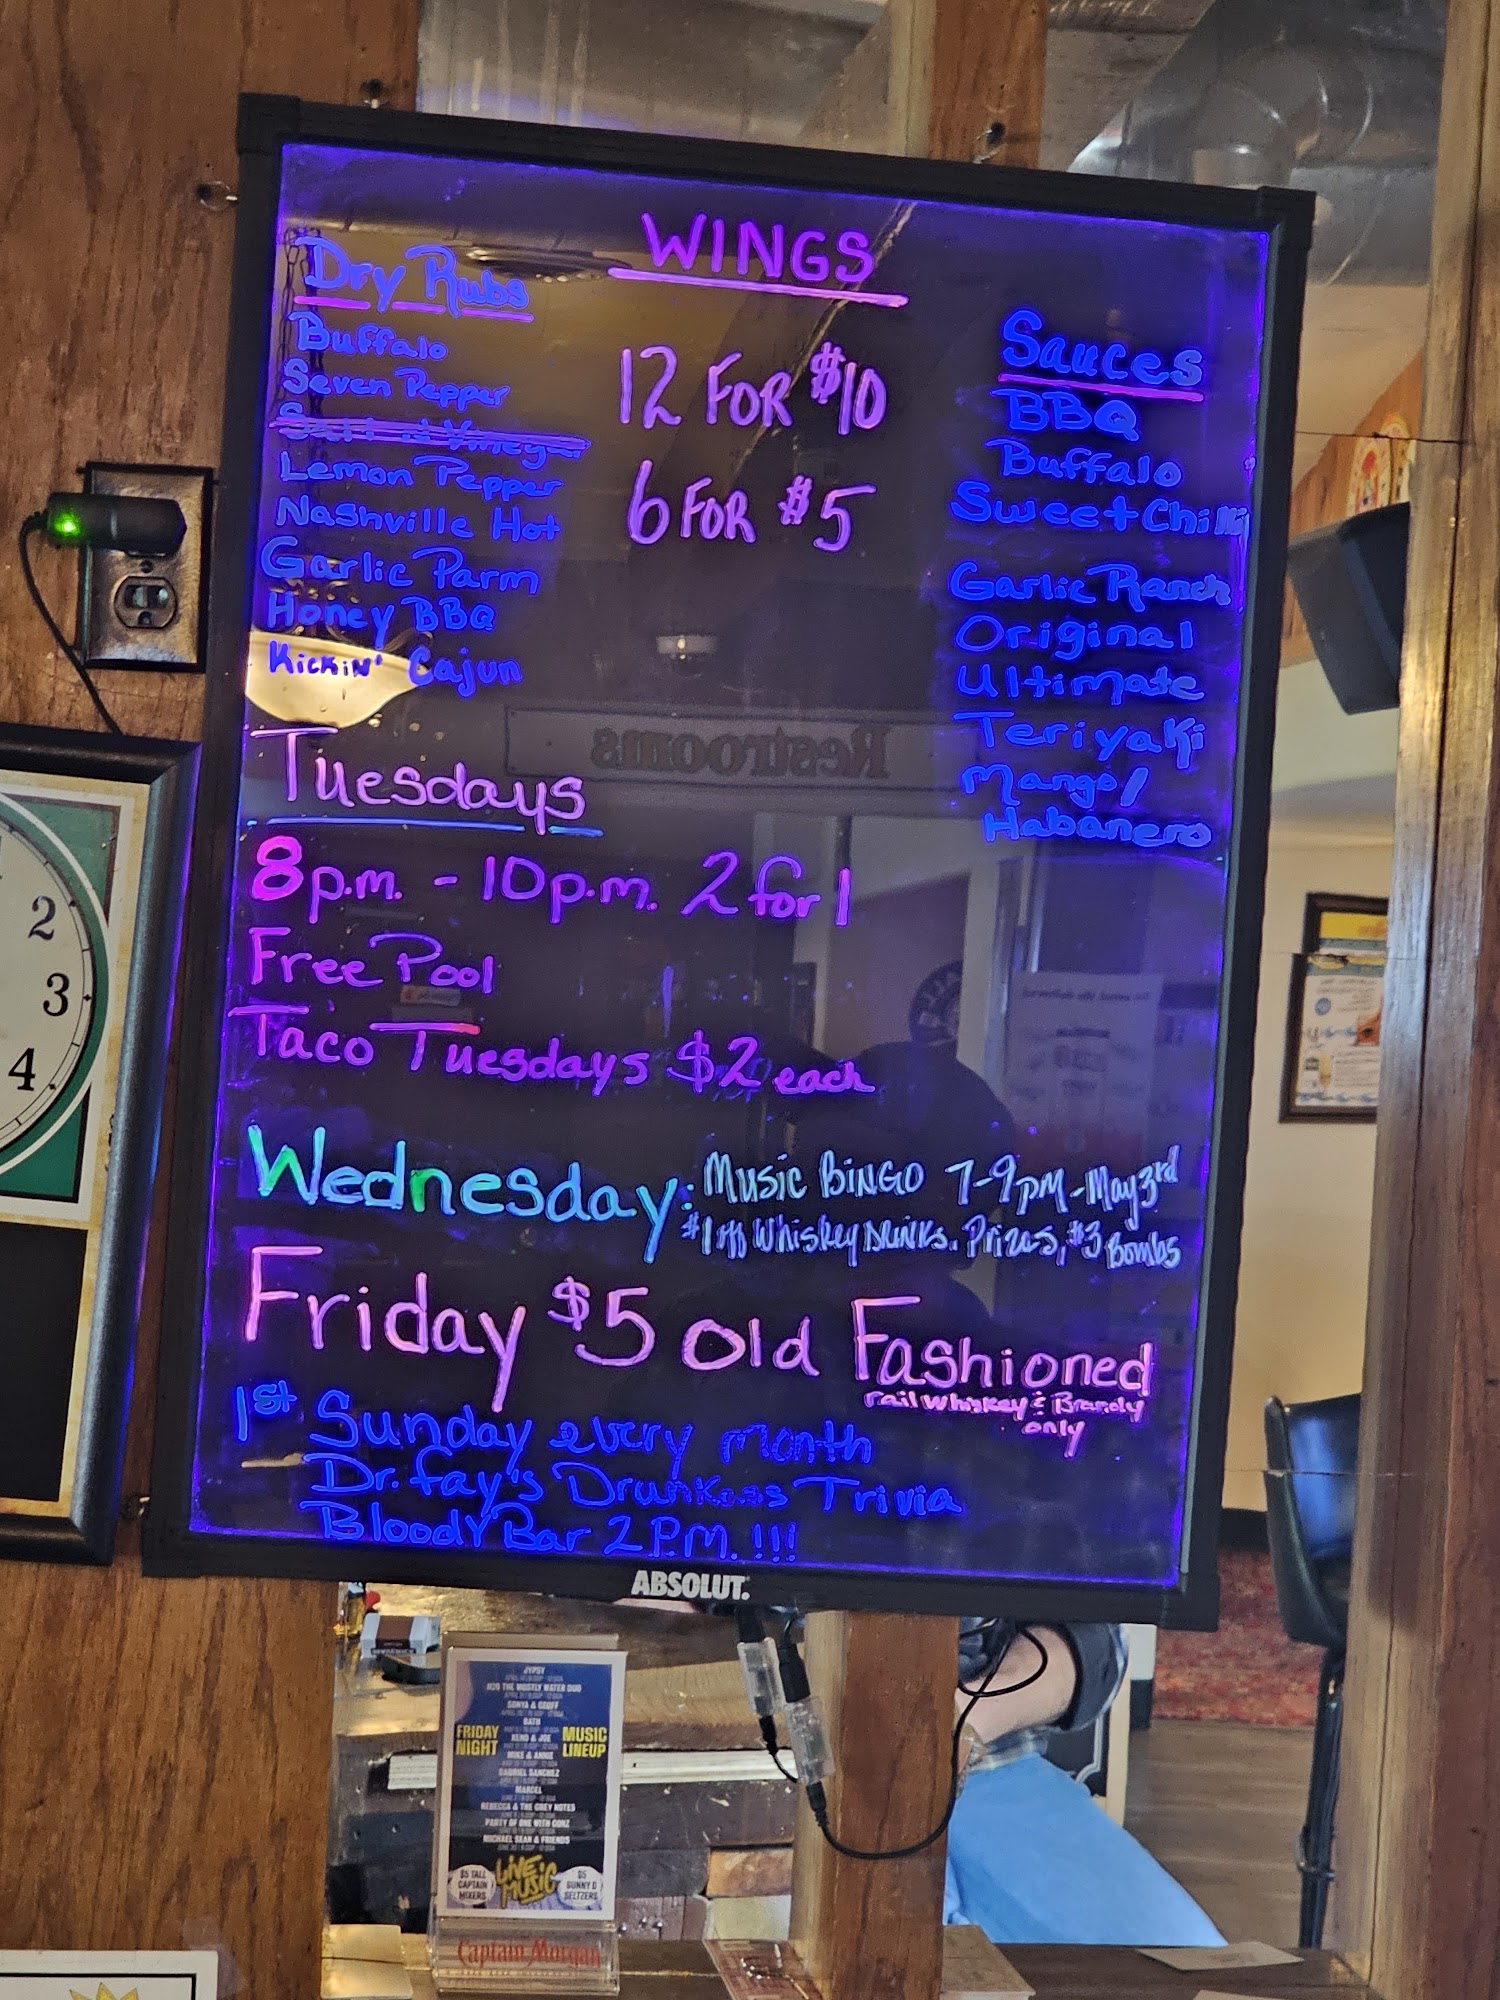 WINGS
Dry Rubs
Buffalo
Seven Pepper
Lemon Pepper
Nashville Hot
Garlic Parm
Honey BBQ
Kickin' Cajun
12 FOR $10
6 FOR $5
Sauces
BBQ
Buffalo
Sweet Chilli
Garlic Ranch
Original
Ultimate
Teriyaki
Mango/
Habanero
Restrooms
Tuesdays
8p.m. - 10p.m. 2 for 1
Free Pool
Taco Tuesdays $2 each
Wednesday: Music Bingo 7-9pm - May 3rd
$1 off Whiskey Drinks. Prizes, $3 Bombs
Friday $5 Old Fashioned
rail whiskey & Brandy
only
1st Sunday every month
Dr. Fay's Drunkass Trivia
Bloody Bar 2 P.M. !!!
ABSOLUT.
2
3
4
JYPSY
SONYA & GEOFF
FRIDAY NIGHT
MUSIC LINEUP
XENO & JOE
MIKE & ANNIE
GABRIEL SANCHEZ
MARCEL
REBECCA & THE GREY NOTES
PARTY OF ONE WITH GONZ
MICHAEL SEAN & FRIENDS
LIVE MUSIC
$5 TALL CAPTAIN MIXERS
$5 SUNNY D SELTZERS
Captain Morgan